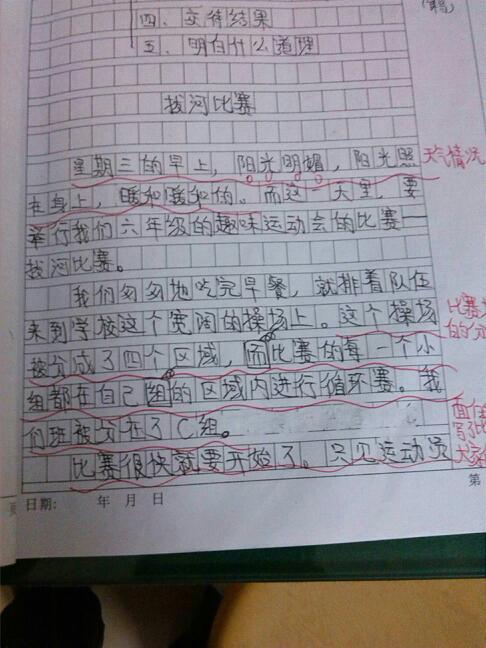 四、交待结果
五、明白什么道理
拔河比赛
星期三的早上，阳光明媚，阳光照
天气情况
在身上，暖和暖和的。而这一天里，要
举行我们六年级的趣味运动会的比赛一
拔河比赛。
我们匆匆地吃完早餐，就排着队伍
来到学校这个宽阔的操场上。这个操场
比赛
的分
被分成了四个区域，而比赛的每一个小
组都在自己组的区域内进行循环赛。我
们班被分在了C组。
比赛很快就要开始了。只见运动员
写了比
大家
第
日期： 年 月 日